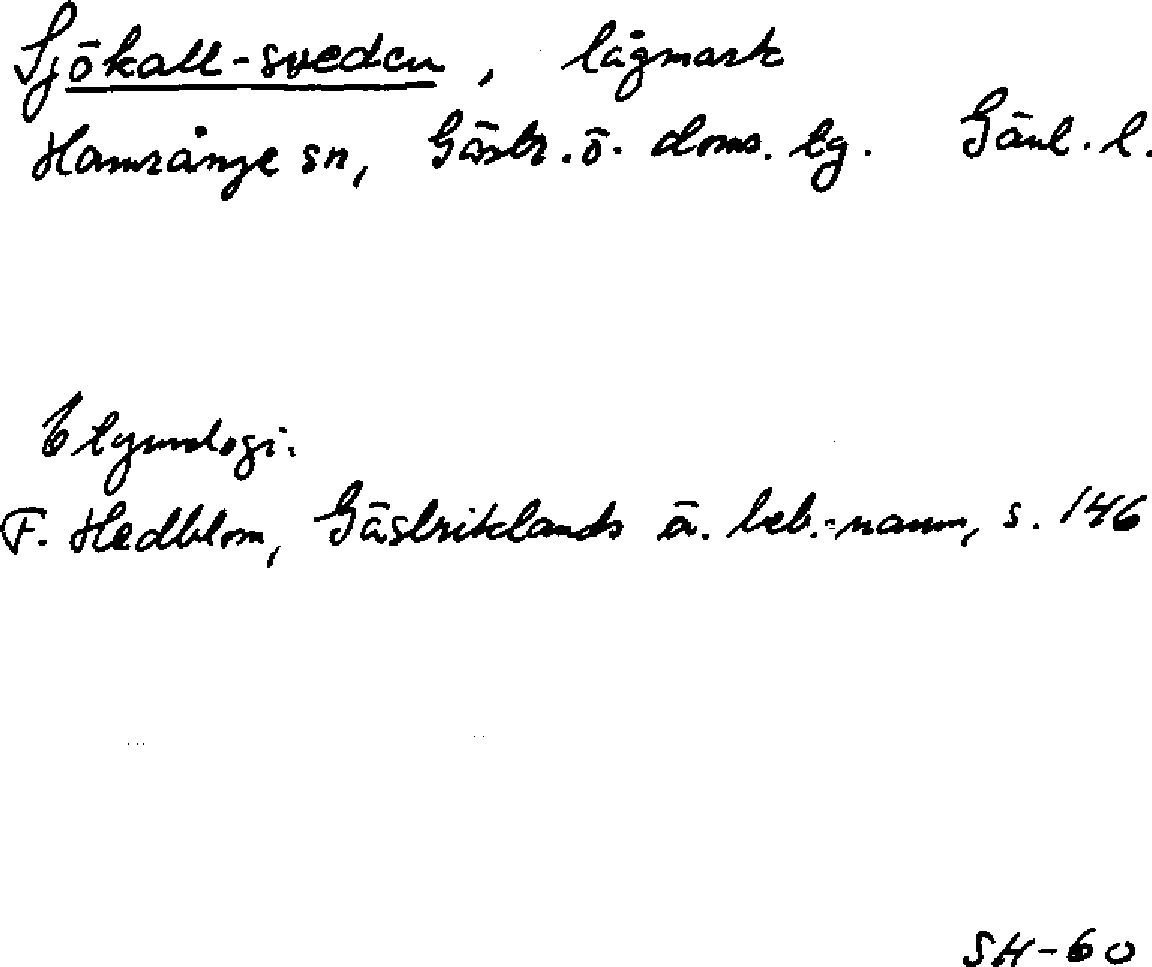 Sjökall-sveden, lågmark
Hamrånge sn, Gästr. ö. doms. tg. Gävl. l.
Etymologi:
F. Hedblom, Gästriklands ä. beb.-namn, s. 146
SH-60